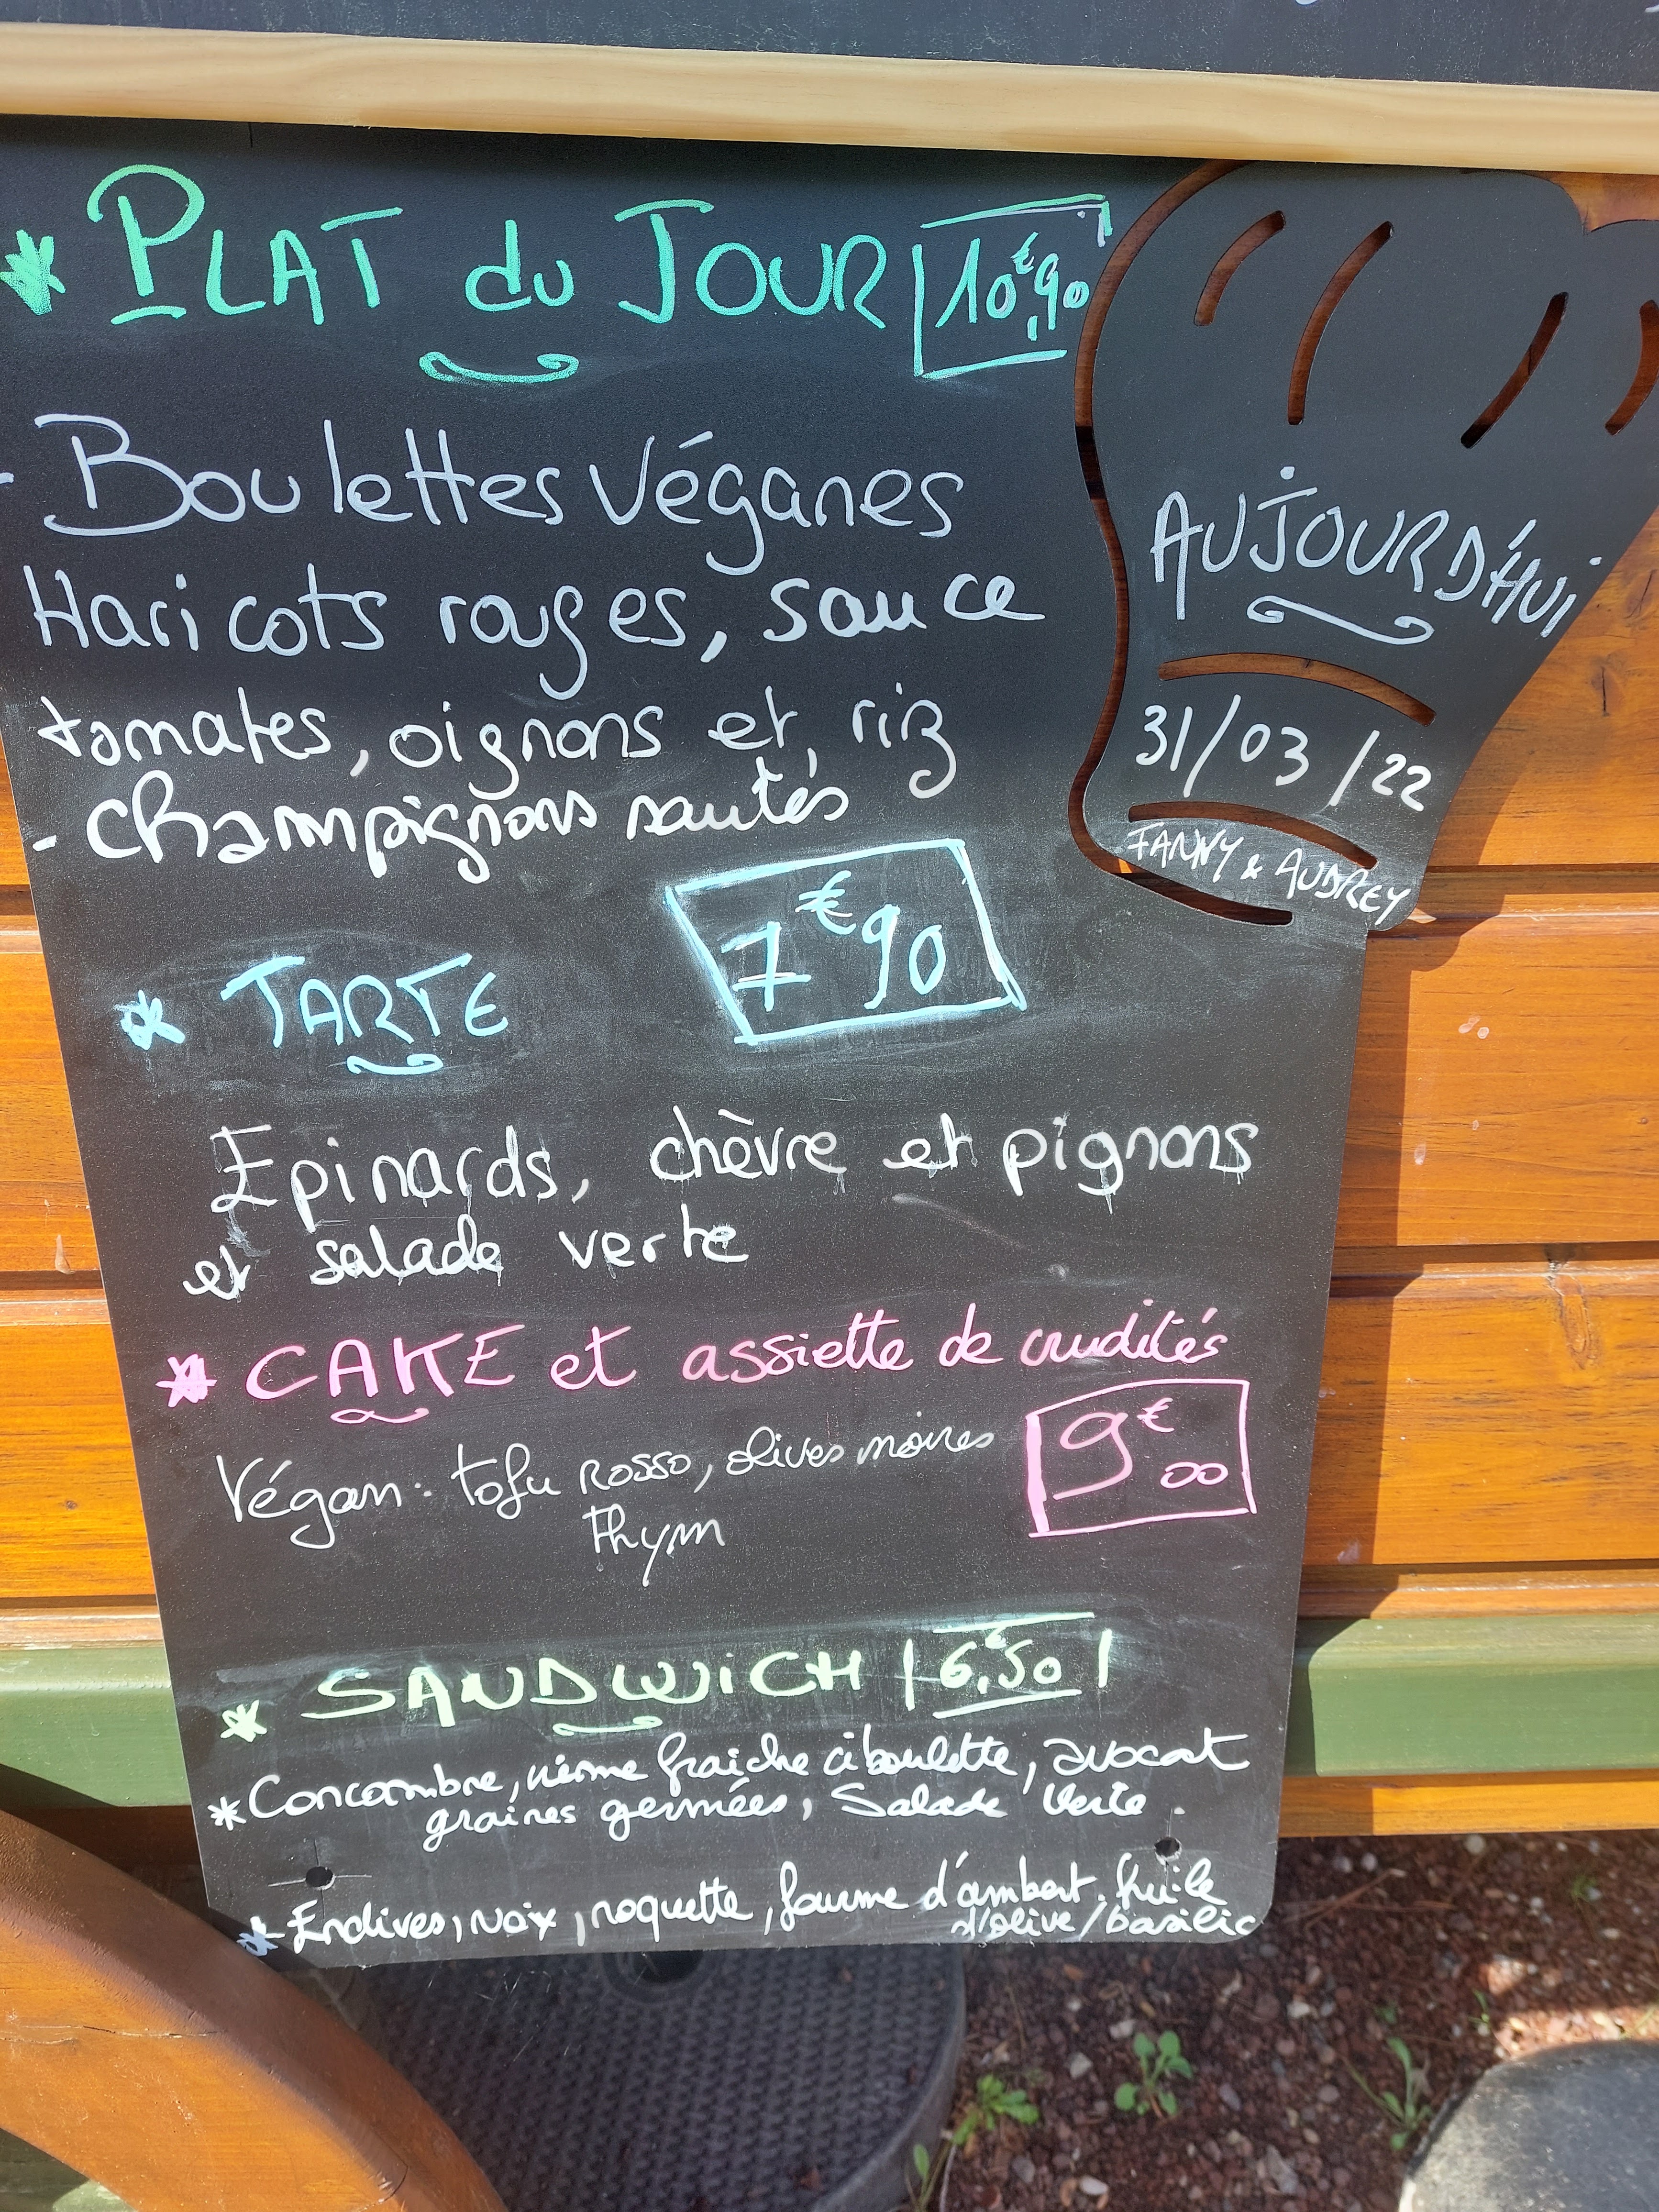 * PLAT du JOUR 10€,90
- Boulettes véganes
Haricots rouges, sauce
tomates, oignons et, riz
- champignons sautés
AUJOURD'HUI
31/03/22
FANNY & AUDREY
* TARTE 7€90
Epinards, chèvre et pignons
et salade verte
* CAKE et assiette de crudités
9€00
Végan: tofu rosso, olives noires
thym
* SANDWICH 6€,50
* Concombre, crème fraiche ciboulette, avocat
graines germées, Salade Verte.
* Endives, noix, roquette, fourme d'ambert, huile
d'olive/basilic